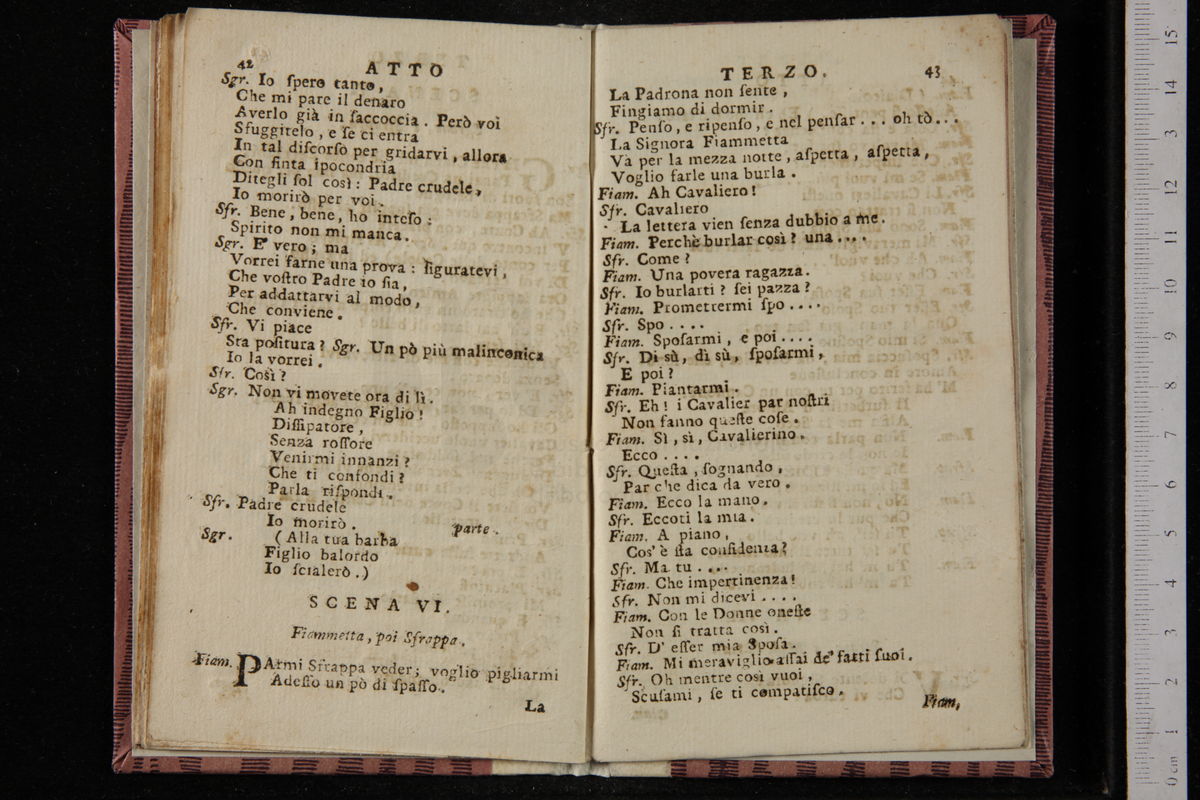 42 ATTO
Sgr. Io ſpero tanto,
Che mi pare il denaro
Averlo già in ſaccoccia. Però voi
Sfuggitelo, e ſe ci entra
In tal diſcorſo per gridarvi, allora
Con finta ipocondria
Ditegli ſol così: Padre crudele,
Io morirò per voi.
Sfr. Bene, bene, ho inteſo:
Spirito non mi manca.
Sgr. E' vero; ma
Vorrei farne una prova: figuratevi,
Che voſtro Padre io ſia,
Per addattarvi al modo,
Che conviene.
Sfr. Vi piace
Sta poſitura? Sgr. Un pò più malinconica
Io la vorrei.
Sfr. Così?
Sgr. Non vi movete ora di lì.
Ah indegno Figlio!
Diſſipatore,
Senza roſſore
Venirmi innanzi?
Che ti confondi?
Parla riſpondi.
Sfr. Padre crudele
Io morirò. parte.
Sgr. (Alla tua barba
Figlio balordo
Io ſcialerò.)
SCENA VI.
Fiammetta, poi Sfrappa.
Fiam. PArmi Sfrappa veder; voglio pigliarmi
Adeſſo un pò di ſpaſſo.
La
TERZO. 43
La Padrona non ſente,
Fingiamo di dormir.
Sfr. Penſo, e ripenſo, e nel penſar... oh tò...
La Signora Fiammetta
Va per la mezza notte, aſpetta, aſpetta,
Voglio farle una burla.
Fiam. Ah Cavaliero!
Sfr. Cavaliero
La lettera vien ſenza dubbio a me.
Fiam. Perchè burlar così? una....
Sfr. Come?
Fiam. Una povera ragazza.
Sfr. Io burlarti? ſei pazza?
Fiam. Promettermi ſpo....
Sfr. Spo....
Fiam. Spoſarmi, e poi....
Sfr. Di sù, dì sù, ſpoſarmi,
E poi?
Fiam. Piantarmi.
Sfr. Eh! i Cavalier par noſtri
Non fanno queſte coſe.
Fiam. Sì, sì, Cavalierino.
Ecco....
Sfr. Queſta, ſognando,
Par che dica da vero.
Fiam. Ecco la mano.
Sfr. Eccoti la mia.
Fiam. A piano,
Cos' è ſta confidenza?
Sfr. Ma tu....
Fiam. Che impertinenza!
Sfr. Non mi dicevi....
Fiam. Con le Donne oneſte
Non ſi tratta così.
Sfr. D' eſſer mia Spoſa.
Fiam. Mi meraviglio aſſai de' fatti ſuoi.
Sfr. Oh mentre così vuoi,
Scuſami, ſe ti compatiſco.
Fiam,